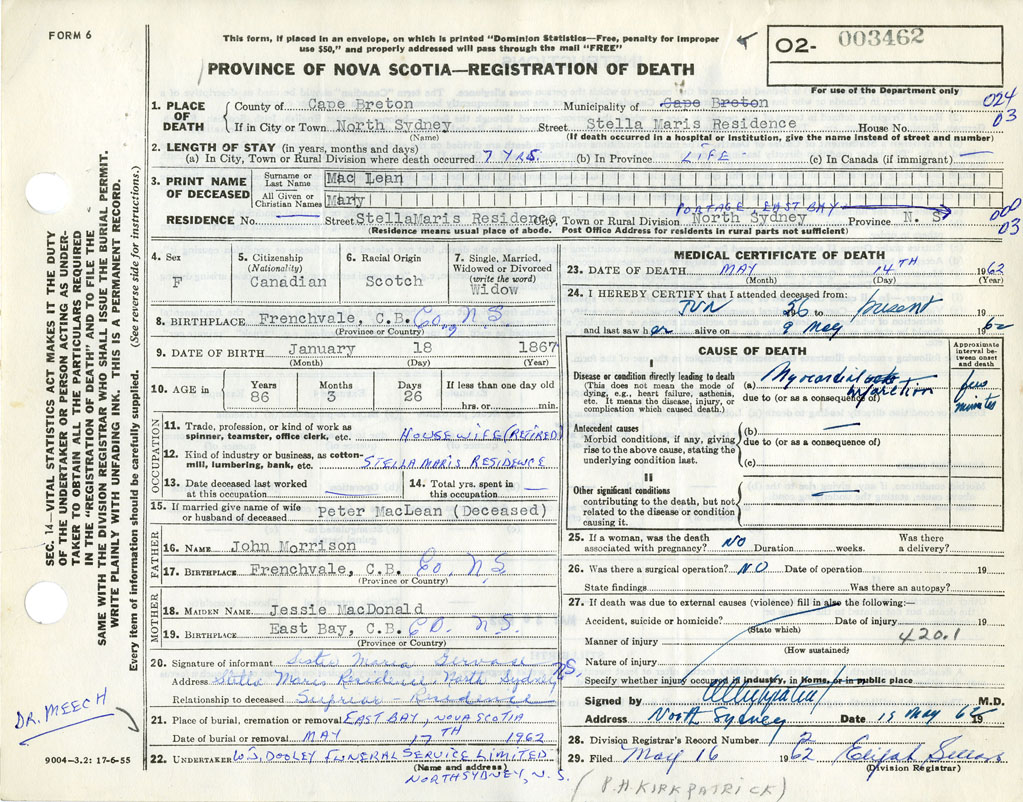 FORM 6
This form, if placed in an envelope, on which is printed "Dominion Statistics—Free, penalty for improper
use $50," and properly addressed will pass through the mail "FREE"
O2- 003462
PROVINCE OF NOVA SCOTIA—REGISTRATION OF DEATH
For use of the Department only
1. PLACE OF DEATH
County of Cape Breton Municipality of Cape Breton 024
If in City or Town North Sydney Street Stella Maris Residence House No. 03
(Name) (If death occurred in a hospital or institution, give the name instead of street and number)
2. LENGTH OF STAY (in years, months and days)
(a) In City, Town or Rural Division where death occurred 7 YRS. (b) In Province LIFE - (c) In Canada (if immigrant) —
3. PRINT NAME OF DECEASED
Surname or Last Name Mac Lean
All Given or Christian Names Mary
PORTAGE EAST BAY
RESIDENCE No. — Street StellaMaris Residence City, Town or Rural Division North Sydney Province N. S. 000
(Residence means usual place of abode. Post Office Address for residents in rural parts not sufficient) 03
4. Sex F
5. Citizenship (Nationality) Canadian
6. Racial Origin Scotch
7. Single, Married, Widowed or Divorced (write the word) Widow
8. BIRTHPLACE Frenchvale, C.B. Co, N.S.
(Province or Country)
9. DATE OF BIRTH January 18 1867
(Month) (Day) (Year)
10. AGE in Years 86 Months 3 Days 26 If less than one day old hrs. or min.
OCCUPATION
11. Trade, profession, or kind of work as spinner, teamster, office clerk, etc. HOUSEWIFE (RETIRED)
12. Kind of industry or business, as cotton-mill, lumbering, bank, etc. STELLA MARIS RESIDENCE
13. Date deceased last worked at this occupation —
14. Total yrs. spent in this occupation —
15. If married give name of wife or husband of deceased Peter MacLean (Deceased)
FATHER
16. NAME John Morrison
17. BIRTHPLACE Frenchvale, C.B. Co, N.S.
(Province or Country)
MOTHER
18. MAIDEN NAME Jessie MacDonald
19. BIRTHPLACE East Bay, C.B. CO. N.S.
(Province or Country)
20. Signature of informant Sister Maria
Address Stella Maris Residence North Sydney N.S.
Relationship to deceased Superior - Residence
21. Place of burial, cremation or removal EAST BAY, NOVA SCOTIA
Date of burial or removal MAY 17TH 1962
22. UNDERTAKER W.J. DOOLEY FUNERAL SERVICE LIMITED
(Name and address)
NORTH SYDNEY, N.S.
MEDICAL CERTIFICATE OF DEATH
23. DATE OF DEATH MAY 14TH 1962
(Month) (Day) (Year)
24. I HEREBY CERTIFY that I attended deceased from:
JUN 56 to present 19
and last saw her alive on 9 May 1962
CAUSE OF DEATH
Approximate interval between onset and death
I
Disease or condition directly leading to death
(This does not mean the mode of dying, e.g., heart failure, asthenia, etc. It means the disease, injury, or complication which caused death.)
(a) Myocardial infarction few minutes
due to (or as a consequence of)
Antecedent causes
Morbid conditions, if any, giving rise to the above cause, stating the underlying condition last.
(b) —
due to (or as a consequence of)
(c)
II
Other significant conditions
contributing to the death, but not related to the disease or condition causing it. —
25. If a woman, was the death associated with pregnancy? NO Duration weeks. Was there a delivery?
26. Was there a surgical operation? NO Date of operation 19
State findings Was there an autopsy?
27. If death was due to external causes (violence) fill in also the following:—
Accident, suicide or homicide? Date of injury 19
(State which)
Manner of injury 420.1
(How sustained)
Nature of injury
Specify whether injury occurred in industry, in home, or in public place
Signed by M.D.
Address North Sydney Date 15 May 62 19
28. Division Registrar's Record Number 2
29. Filed May 16 1962 Elijah
(Division Registrar)
(P.H. KIRKPATRICK)
SEC. 14—VITAL STATISTICS ACT MAKES IT THE DUTY
OF THE UNDERTAKER OR PERSON ACTING AS UNDER-
TAKER TO OBTAIN ALL THE PARTICULARS REQUIRED
IN THE "REGISTRATION OF DEATH" AND TO FILE THE
SAME WITH THE DIVISION REGISTRAR WHO SHALL ISSUE THE BURIAL PERMIT.
WRITE PLAINLY WITH UNFADING INK. THIS IS A PERMANENT RECORD.
Every item of information should be carefully supplied. (See reverse side for instructions.)
DR. MEECH
9004—3.2: 17-6-55